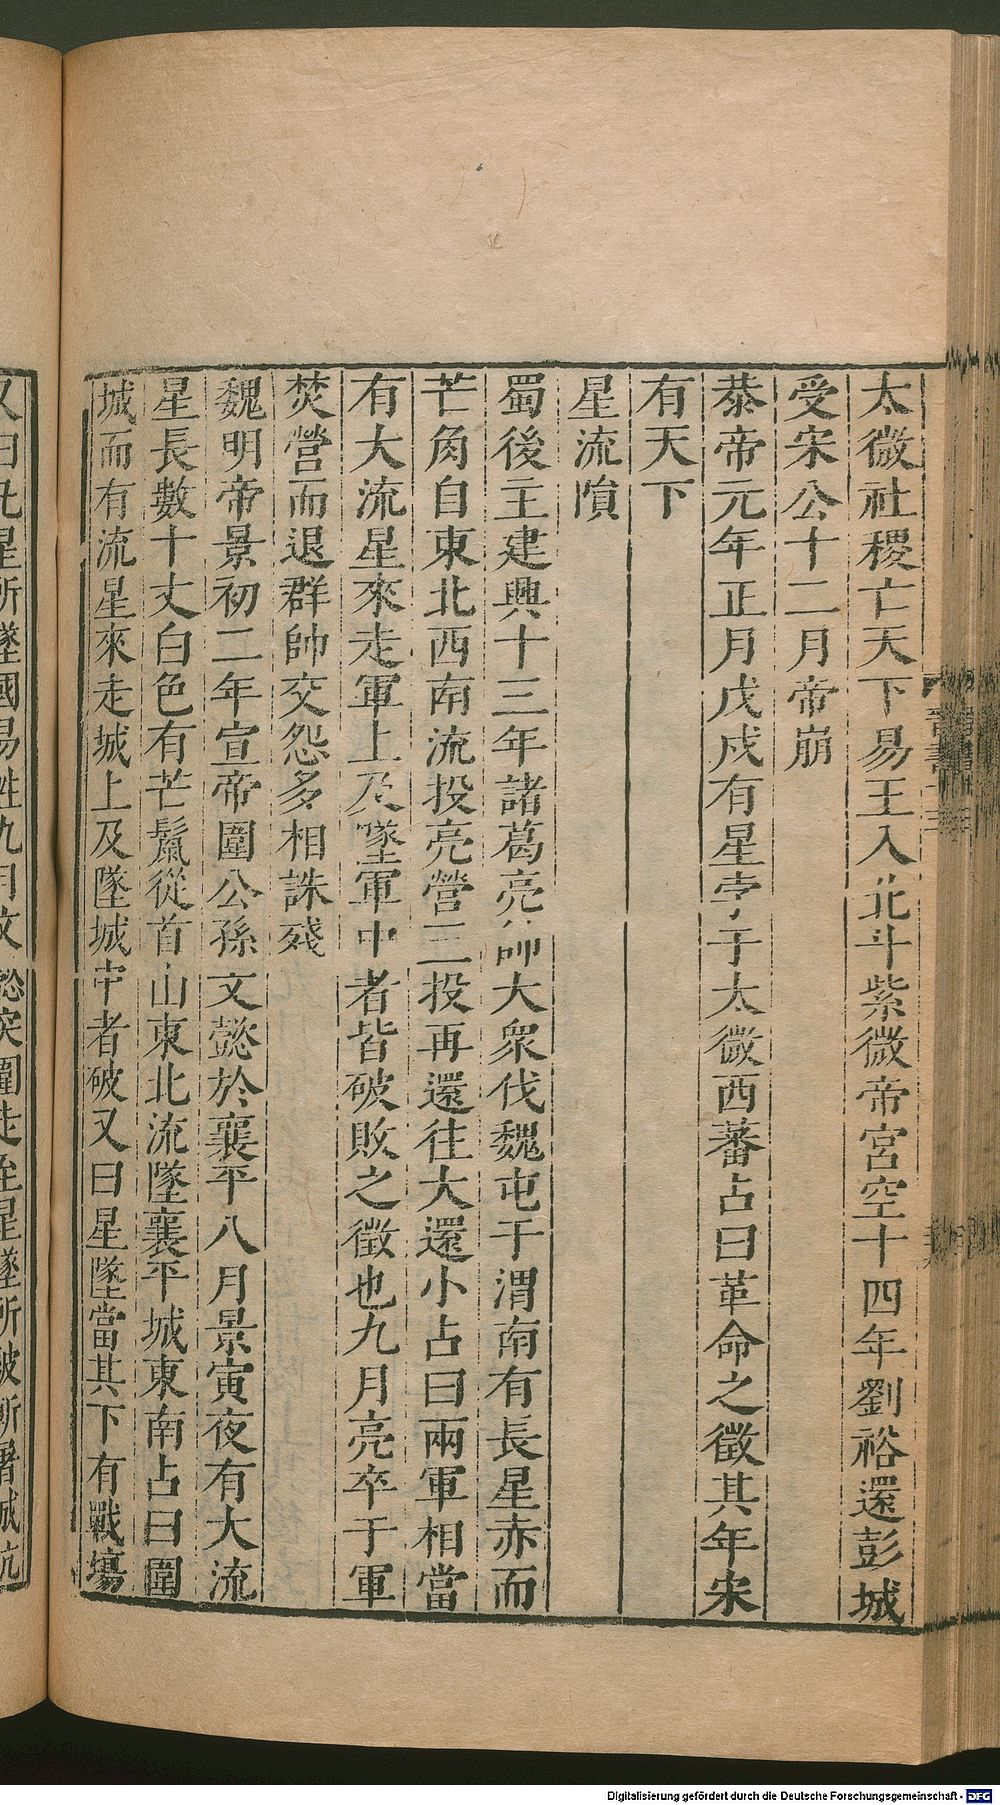 太微社稷亡天下易王入北斗紫微帝宮空十四年劉裕還彭城
受宋公十二月帝崩
恭帝元年正月戊戌有星孛于太微西蕃占曰革命之徵其年宋
有天下
星流隕
蜀後主建興十三年諸葛亮帥大衆伐魏屯于渭南有長星赤而
芒角自東北西南流投亮營三投再還往大還小占曰兩軍相當
有大流星來走軍上及墜軍中者皆破敗之徵也九月亮卒于軍
焚營而退群帥交怨多相誅殘
魏明帝景初二年宣帝圍公孫文懿於襄平八月景寅夜有大流
星長數十丈白色有芒鬣從首山東北流墜襄平城東南占曰圍
城而有流星來走城上及墜城中者破又曰星墜當其下有戰場
又曰凡星所墜國易姓九月文懿突圍走至星墜所被斬屠城坑
Digitalisierung gefördert durch die Deutsche Forschungsgemeinschaft - DFG